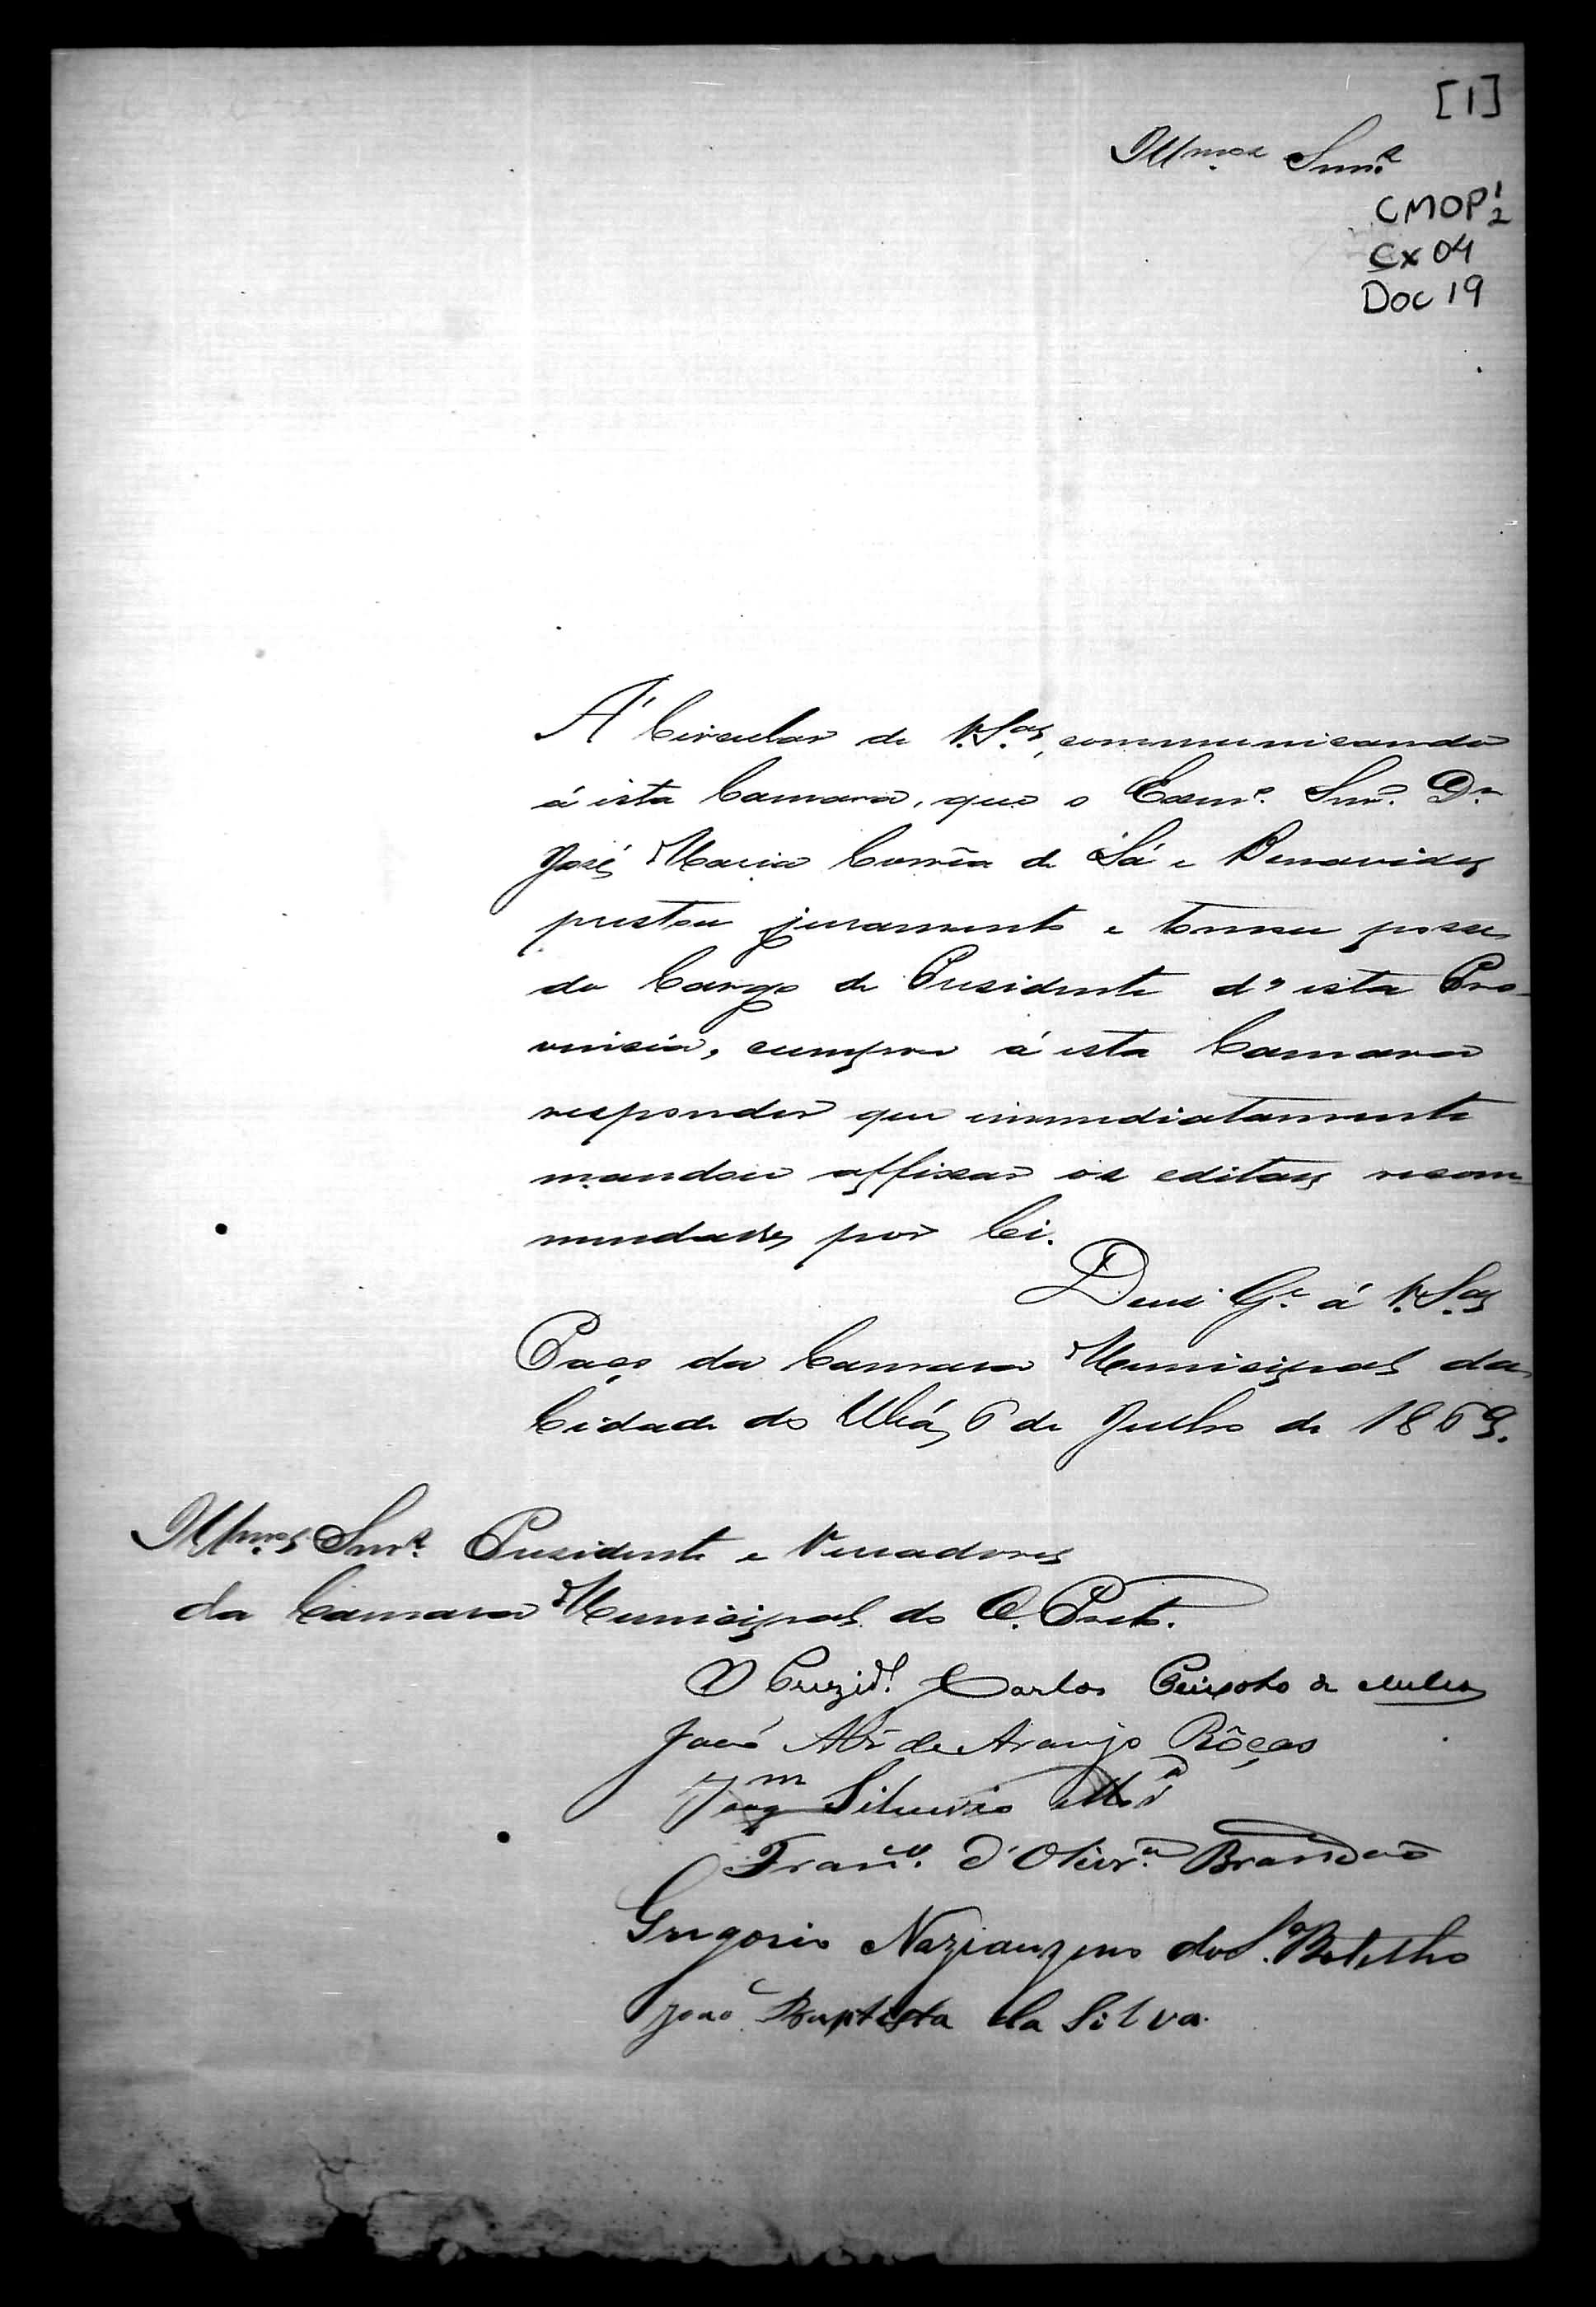 [1]
Illmos Snrs
CMOP 1/2
Cx 04
Doc 19
A' Circular de V.Sas, communicando
á esta Camara, que o Exmo. Snr. Dr
José Maria Corrêa de Sá e Benavides
prestou juramento e tomou posse
do Cargo de Presidente d'esta Pro-
vincia, cumpre á esta Camara
responder que immediatamente
mandou affixar os editaes recom-
mendados por lei.
Deus Ge á V.Sas
Paço da Camara Municipal da
Cidade do Ubá, 6 de Julho de 1869.
Illmos Snrs Presidente e Vereadores
da Camara Municipal do O. Preto.
O Prezide. Carlos Peixoto de Mello
de Araujo Rôças
Joaqm Silverio
Franco. d'Olivra. Brandão
Gregorio Nazianzeno do Sa. Botelho
João Baptista da Silva.